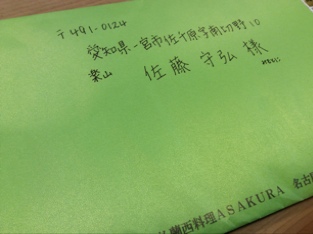 〒491-0124
愛知県一宮市佐千原字南切野10
葉山 佐藤守弘様
蘭西料理ASAKURA 名古